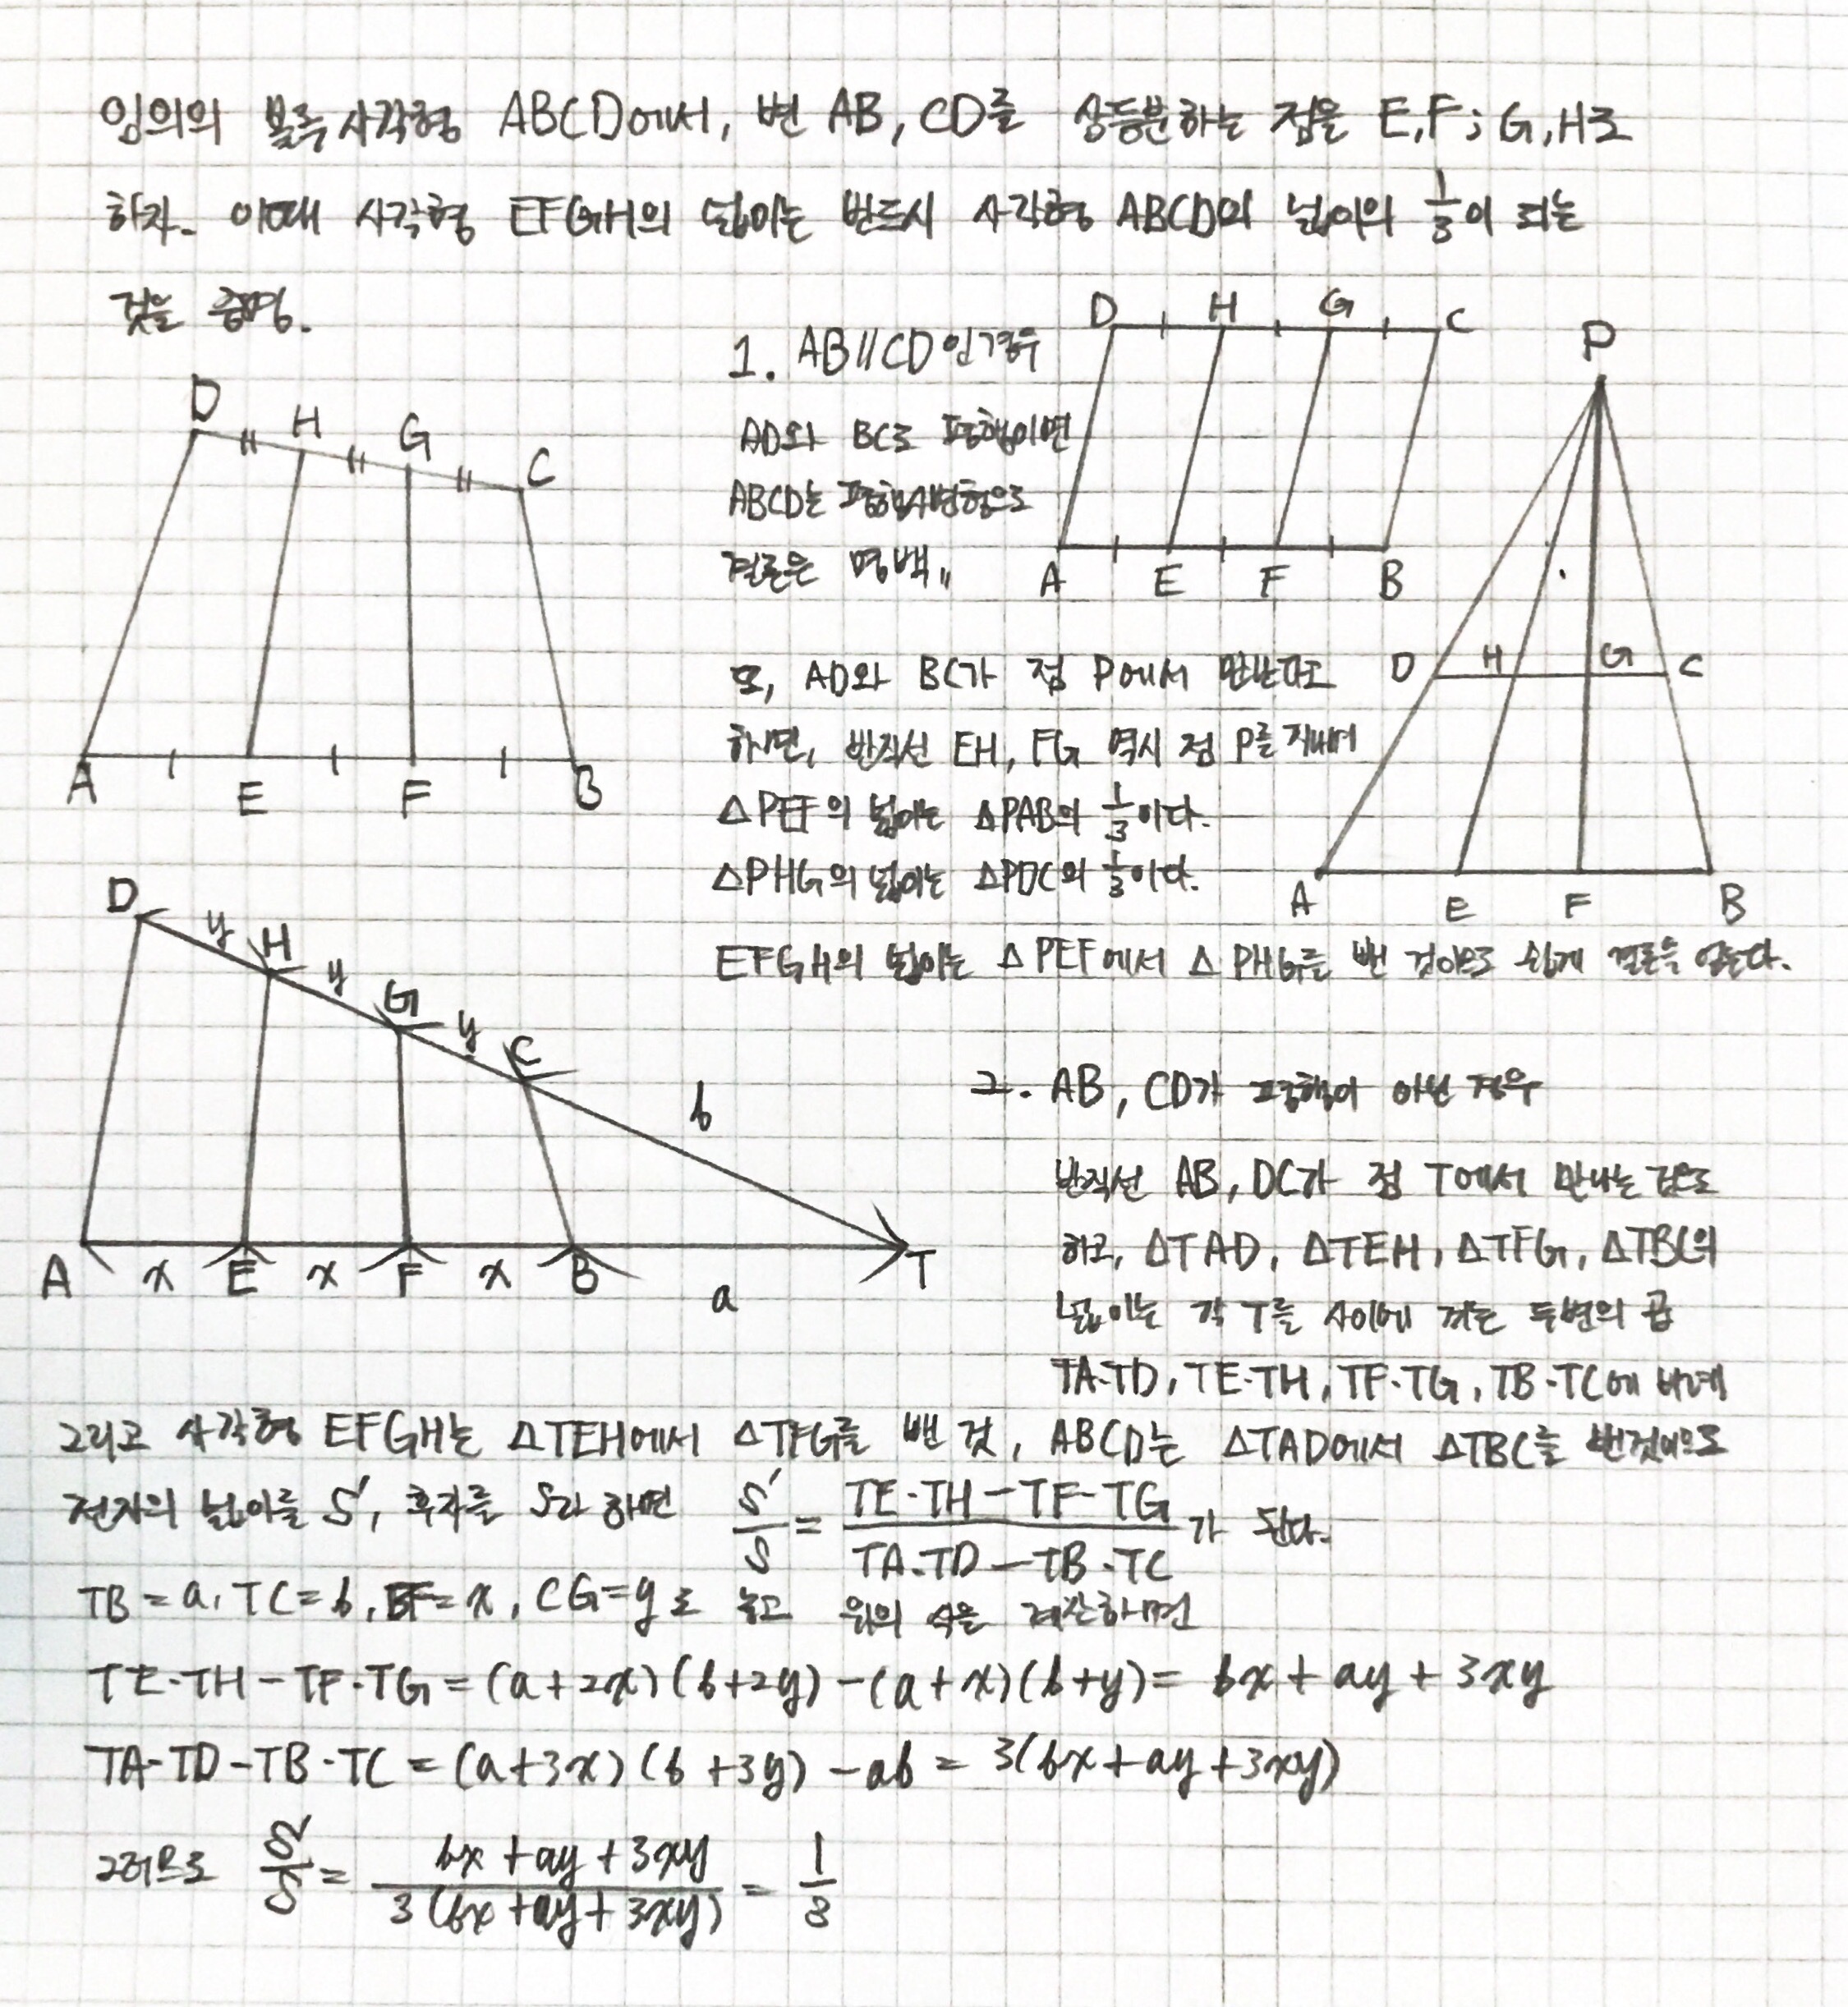 임의의 볼록사각형 ABCD에서, 변 AB, CD를 삼등분하는 점을 E,F; G,H로
하자. 이때 사각형 EFGH의 넓이는 반드시 사각형 ABCD의 넓이의 1/3이 되는
것을 증명.
D H G C
A E F B
1. AB//CD인 경우
AD와 BC로 평행이면
ABCD는 평행사변형으로
결론은 명백〃
D H G C
A E F B
P
D H G C
A E F B
또, AD와 BC가 점 P에서 만난다고
하면, 반직선 EH, FG 역시 점 P를 지나며
△PEF의 넓이는 △PAB의 1/3이다.
△PHG의 넓이는 △PDC의 1/3이다.
EFGH의 넓이는 △PEF에서 △PHG를 뺀 것이므로 쉽게 결론을 얻는다.
D y H y G y C b
A x E x F x B a T
2. AB, CD가 평행이 아닌 경우
반직선 AB, DC가 점 T에서 만나는 것으로
하고, △TAD, △TEH, △TFG, △TBC의
넓이는 각 T를 사이에 끼는 두변의 곱
TA·TD, TE·TH, TF·TG, TB·TC에 비례
그리고 사각형 EFGH는 △TEH에서 △TFG를 뺀 것, ABCD는 △TAD에서 △TBC를 뺀것이므로
전자의 넓이를 S', 후자를 S라 하면 S'/S = (TE·TH-TF·TG)/(TA·TD-TB·TC)가 된다.
TB=a, TC=b, BF=x, CG=y로 놓고 위의 식을 계산하면
TE·TH-TF·TG=(a+2x)(b+2y)-(a+x)(b+y)= bx+ay+3xy
TA·TD-TB·TC=(a+3x)(b+3y)-ab=3(bx+ay+3xy)
그러므로 S'/S = (bx+ay+3xy)/(3(bx+ay+3xy)) = 1/3